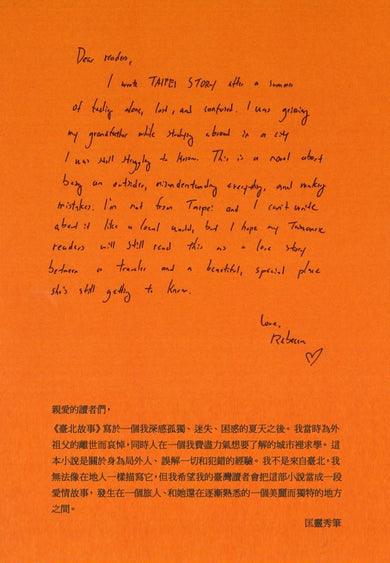 Dear readers,
I wrote TAIPEI STORY after a summer
of feeling alone, lost, and confused. I was grieving
my grandfather while studying abroad in a city
I was still struggling to know. This is a novel about
being an outsider, misunderstanding everything, and making
mistakes. I'm not from Taipei and I can't write
about it like a local would, but I hope my Taiwanese
readers will still read this as a love story
between a traveler and a beautiful, special place
she's still getting to know.
Love,
Rebecca
親愛的讀者們，
《臺北故事》寫於一個我深感孤獨、迷失、困惑的夏天之後。我當時為外
祖父的離世而哀悼，同時人在一個我費盡力氣想要了解的城市裡求學。這
本小說是關於身為局外人、誤解一切和犯錯的經驗。我不是來自臺北，我
無法像在地人一樣描寫它，但我希望我的臺灣讀者會把這部小說當成一段
愛情故事，發生在一個旅人、和她還在逐漸熟悉的一個美麗而獨特的地方
之間。
匡靈秀筆